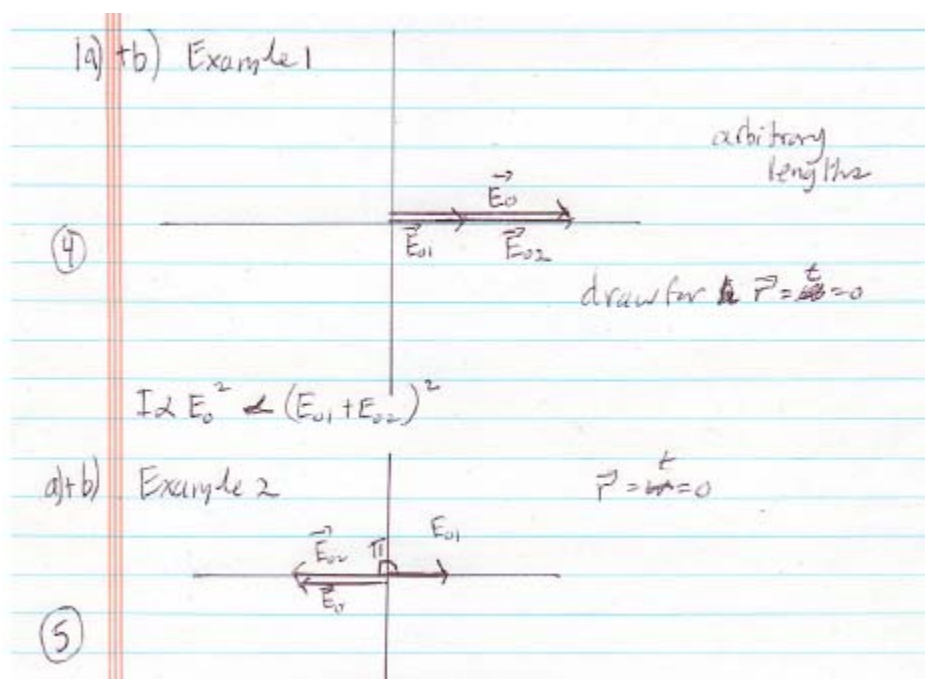 1a) +b) Example 1
arbitrary
lengths
E⃗₀
E⃗₀₁ E⃗₀₂
4
draw for r⃗ = t = 0
I α E₀² α (E₀₁ + E₀₂)²
a)+b) Example 2
r⃗ = t = 0
E⃗₀₂ π E₀₁
E⃗₀
5